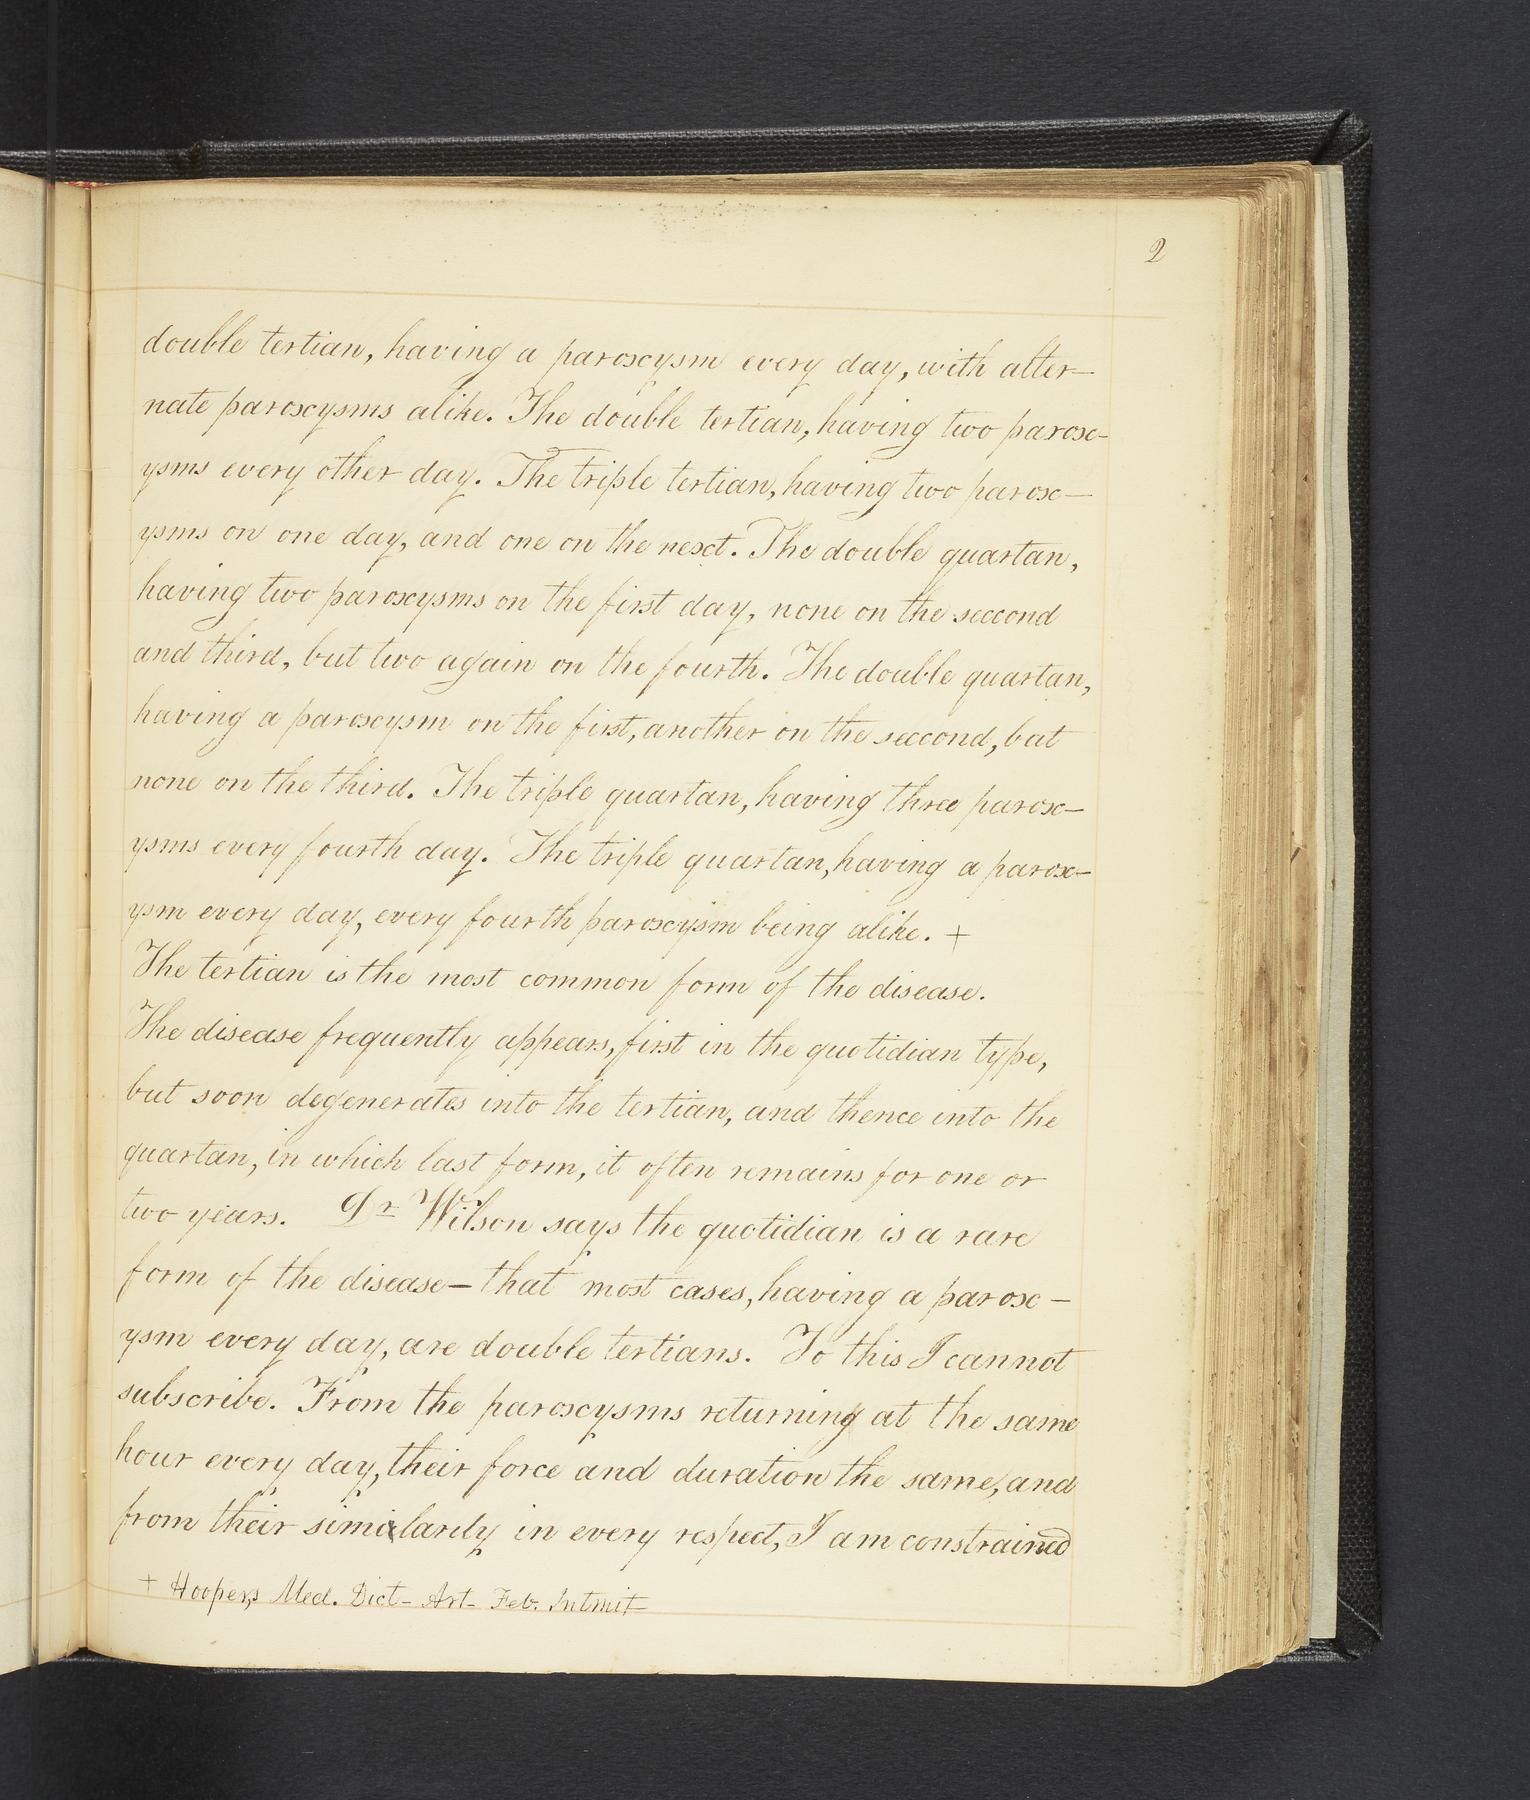 2
double tertian, having a paroxysm every day, with alter-
nate paroxysms alike. The double tertian, having two parox-
ysms every other day. The triple tertian, having two parox-
ysms on one day, and one on the next. The double quartan,
having two paroxysms on the first day, none on the second
and third, but two again on the fourth. The double quartan,
having a paroxysm on the first, another on the second, but
none on the third. The triple quartan, having three parox-
ysms every fourth day. The triple quartan, having a parox-
ysm every day, every fourth paroxysm being alike. +
The tertian is the most common form of the disease.
The disease frequently appears, first in the quotidian type,
but soon degenerates into the tertian, and thence into the
quartan, in which last form, it often remains for one or
two years. Dr Wilson says the quotidian is a rare
form of the disease - that most cases, having a parox-
ysm every day, are double tertians. To this I cannot
subscribe. From the paroxysms returning at the same
hour every day, their force and duration the same, and
from their similarily in every respect, I am constrained
+ Hooper's Med. Dict- Art- Feb. Intmit-